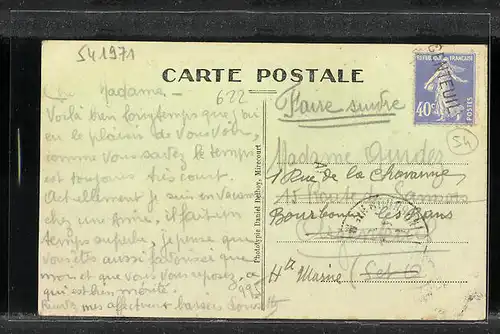 541971
CARTE POSTALE
622
Madame.
Voilà bien longtemps que j'ai
eu le plaisir de vous voir,
comme vous savez le temps
est toujours très court.
Actuellement je suis en vacances
chez une amie, il fait un
temps superbe, je pense que
vous êtes aussi favorisée que
moi et que vous vous reposez, ce
qui est bien mérité.
Phototypie Daniel Delboy, Mirecourt
Faire suivre
REPUBLIQUE FRANÇAISE
40c
POSTES
54
Madame
1 Rue de la Chavanne
15 Route de
Bourbonne les Bains
Argenteuil
Hte Marne
(S et O)